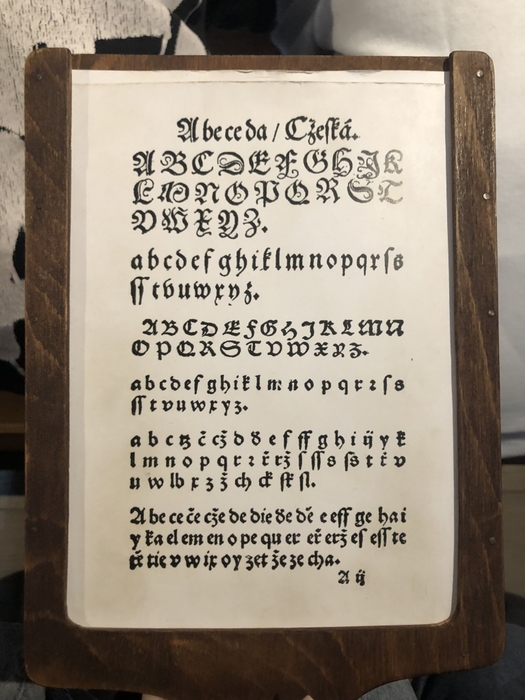 Abeceda / Cžeſká.
A B C D E F G H J K
L M N O P Q R S T
V W X Y Z.
a b c d e f g h i k l m n o p q r ſ s
ſſ t v u w x y z.
A B C D E F G H J K L M N
O P Q R S T V W X Y Z.
a b c d e f g h i k l m n o p q r ꝛ ſ s
ſſ t v u w x y z.
a b c tz č cž d ď e f ff g h i ij y k
l m n o p q r ꝛ ř rž ſ ſſ s ſs t ť v
u w lb x z ž ch ck ſk ſl.
A be ce če cže de die ďe dě e eff ge ha i
y ka el em en o pe qu er eř erž eſ eſſ te
tie v w ix oy zet že ze cha.
A ij